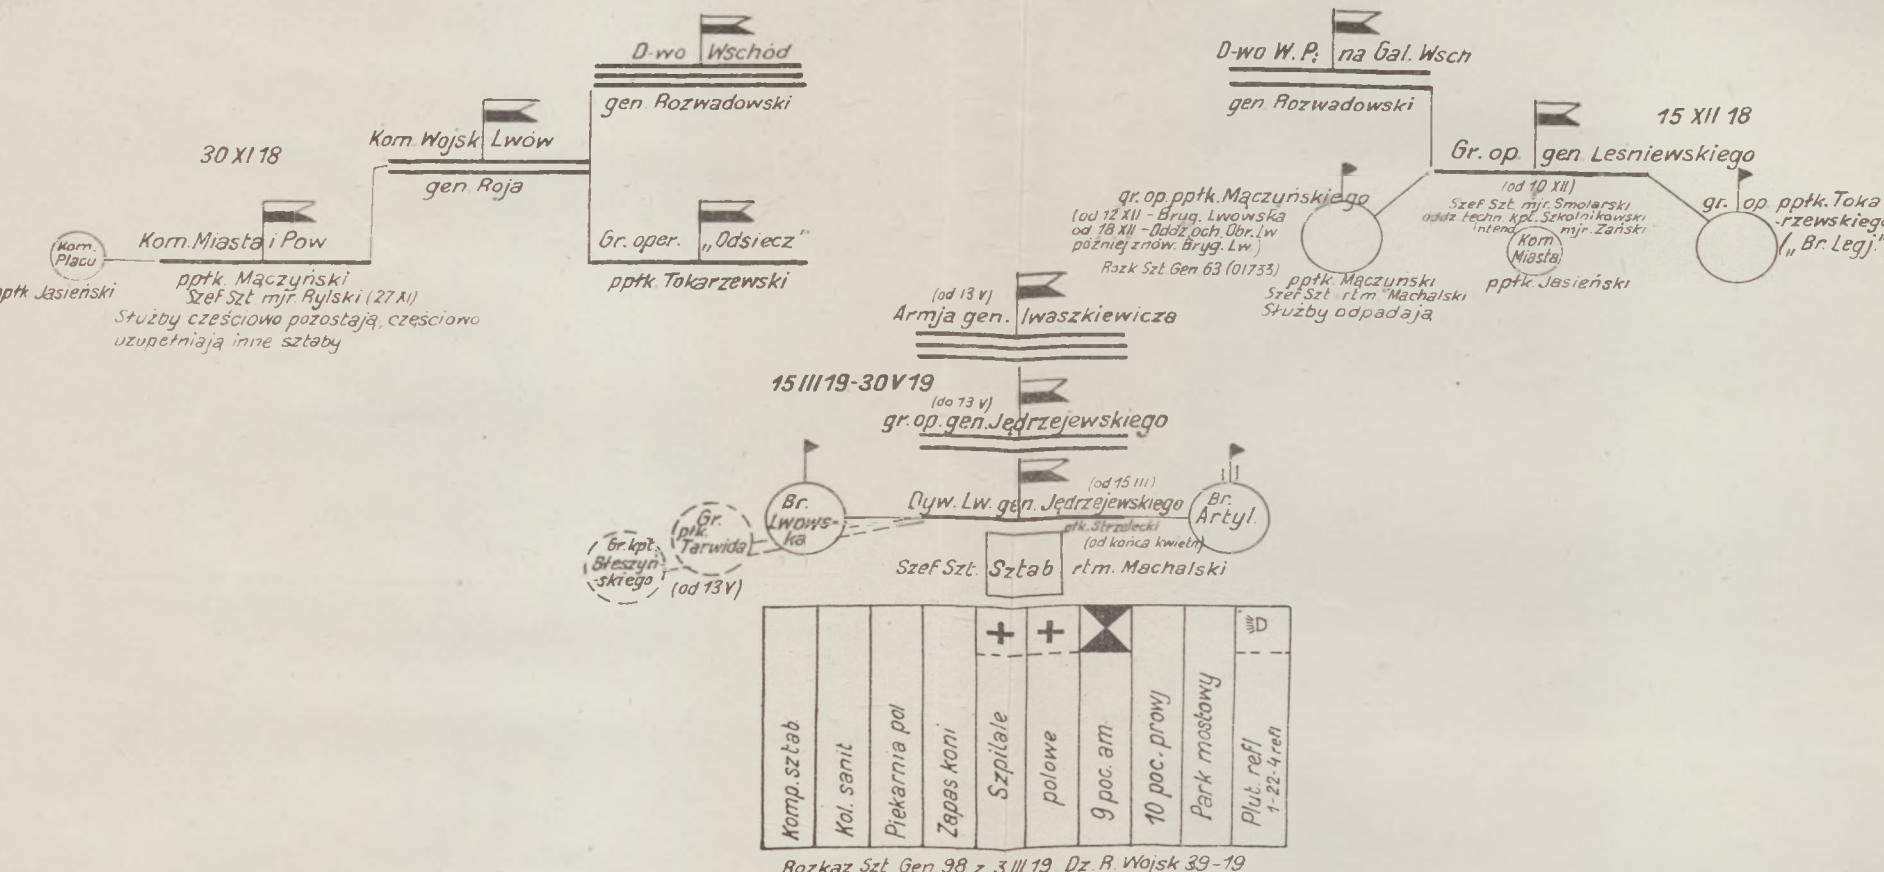 D-wo Wschód
gen. Rozwadowski
Kom. Wojsk Lwów
gen. Roja
30 XI 18
Kom. Miasta i Pow
Kom.
Placu
ppłk Jasieński
ppłk. Mączyński
Szef Szt mjr. Rylski (27 XI)
Służby cześciowo pozostają, częściowo
uzupełniają inne sztaby
Gr. oper. „Odsiecz”
ppłk. Tokarzewski
D-wo W. P. na Gal. Wsch
gen Rozwadowski
15 XII 18
Gr. op gen Leśniewskiego
(od 10 XII)
Szef Szt. mjr. Smolarski
oddz techn. kpt. Szkolnikowski
intend mjr. Zański
Kom
Miasta
ppłk. Jasieński
gr. op. ppłk. Mączuńskiego
(od 12 XII - Bryg. Lwowska
od 18 XII - Oddz och. Obr. Lw
później znów. Bryg. Lw)
Rozk Szt Gen 63 (01733)
ppłk. Mączuński
Szef Szt rtm Machalski
Służby odpadają
gr. op ppłk. Toka
-rzewskiego
(„Br. Legj.”
(od 13 V)
Armja gen. Iwaszkiewicza
15 III 19-30 V 19
(do 13 V)
gr. op. gen. Jędrzejewskiego
(od 15 III)
Dyw. Lw. gen. Jędrzejewskiego
płk. Strzelecki
(od końca kwietn)
Br.
Lwows-
ka
Br.
Artyl.
Gr.
płk.
Tarwida
Gr. kpt.
Błeszyń-
-skiego
(od 13 V)
Szef Szt. Sztab rtm. Machalski
Komp. sztab
Kol. sanit
Piekarnia pol
Zapas koni
Szpitale
polowe
9 poc. am
10 poc. prowj
Park mostowy
Plut. refl
1-22-4 refl
Rozkaz Szt Gen 98 z 3 III 19 Dz. R. Wojsk 39-19